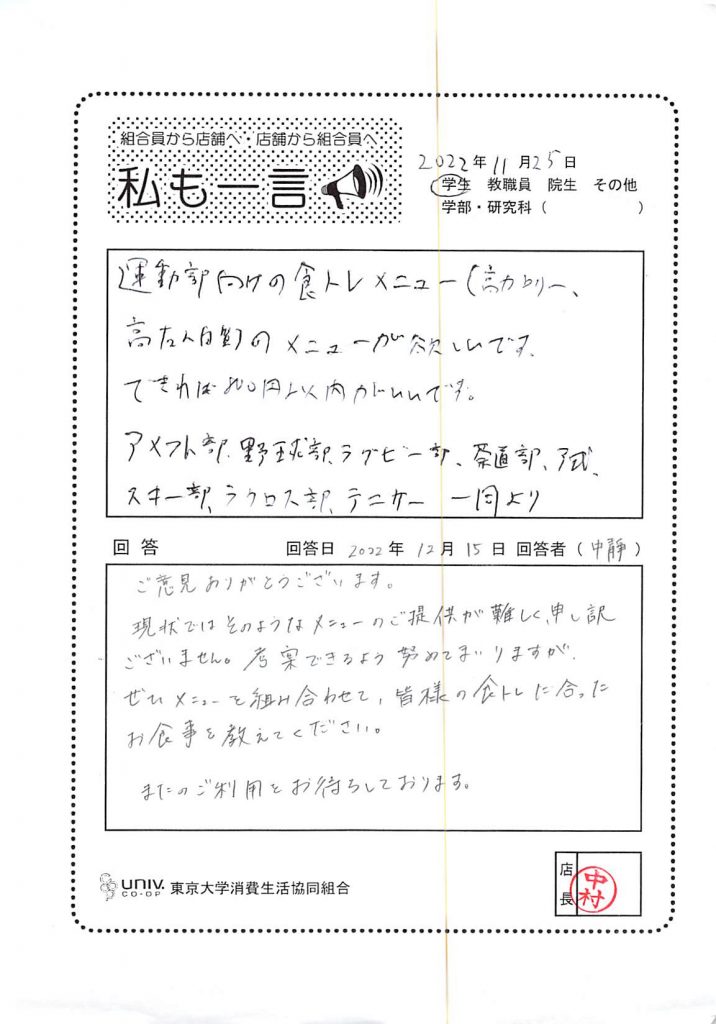 組合員から店舗へ・店舗から組合員へ
私も一言
2022年11月25日
学生 教職員 院生 その他
学部・研究科( )
運動部向けの食トレメニュー(高カロリー、
高たんぱく)のメニューが欲しいです。
できれば800円以内がいいです。
アメフト部、野球部、ラグビー部、茶道部、ア式、
スキー部、ラクロス部、テニサー 一同より
回答 回答日 2022年12月15日 回答者(中静)
ご意見ありがとうございます。
現状ではそのようなメニューのご提供が難しく、申し訳
ございません。考案できるよう努めてまいりますが、
ぜひメニューを組み合わせて、皆様の食トレに合った
お食事を教えてください。
またのご利用をお待ちしております。
UNIV. CO-OP 東京大学消費生活協同組合
店長 中村